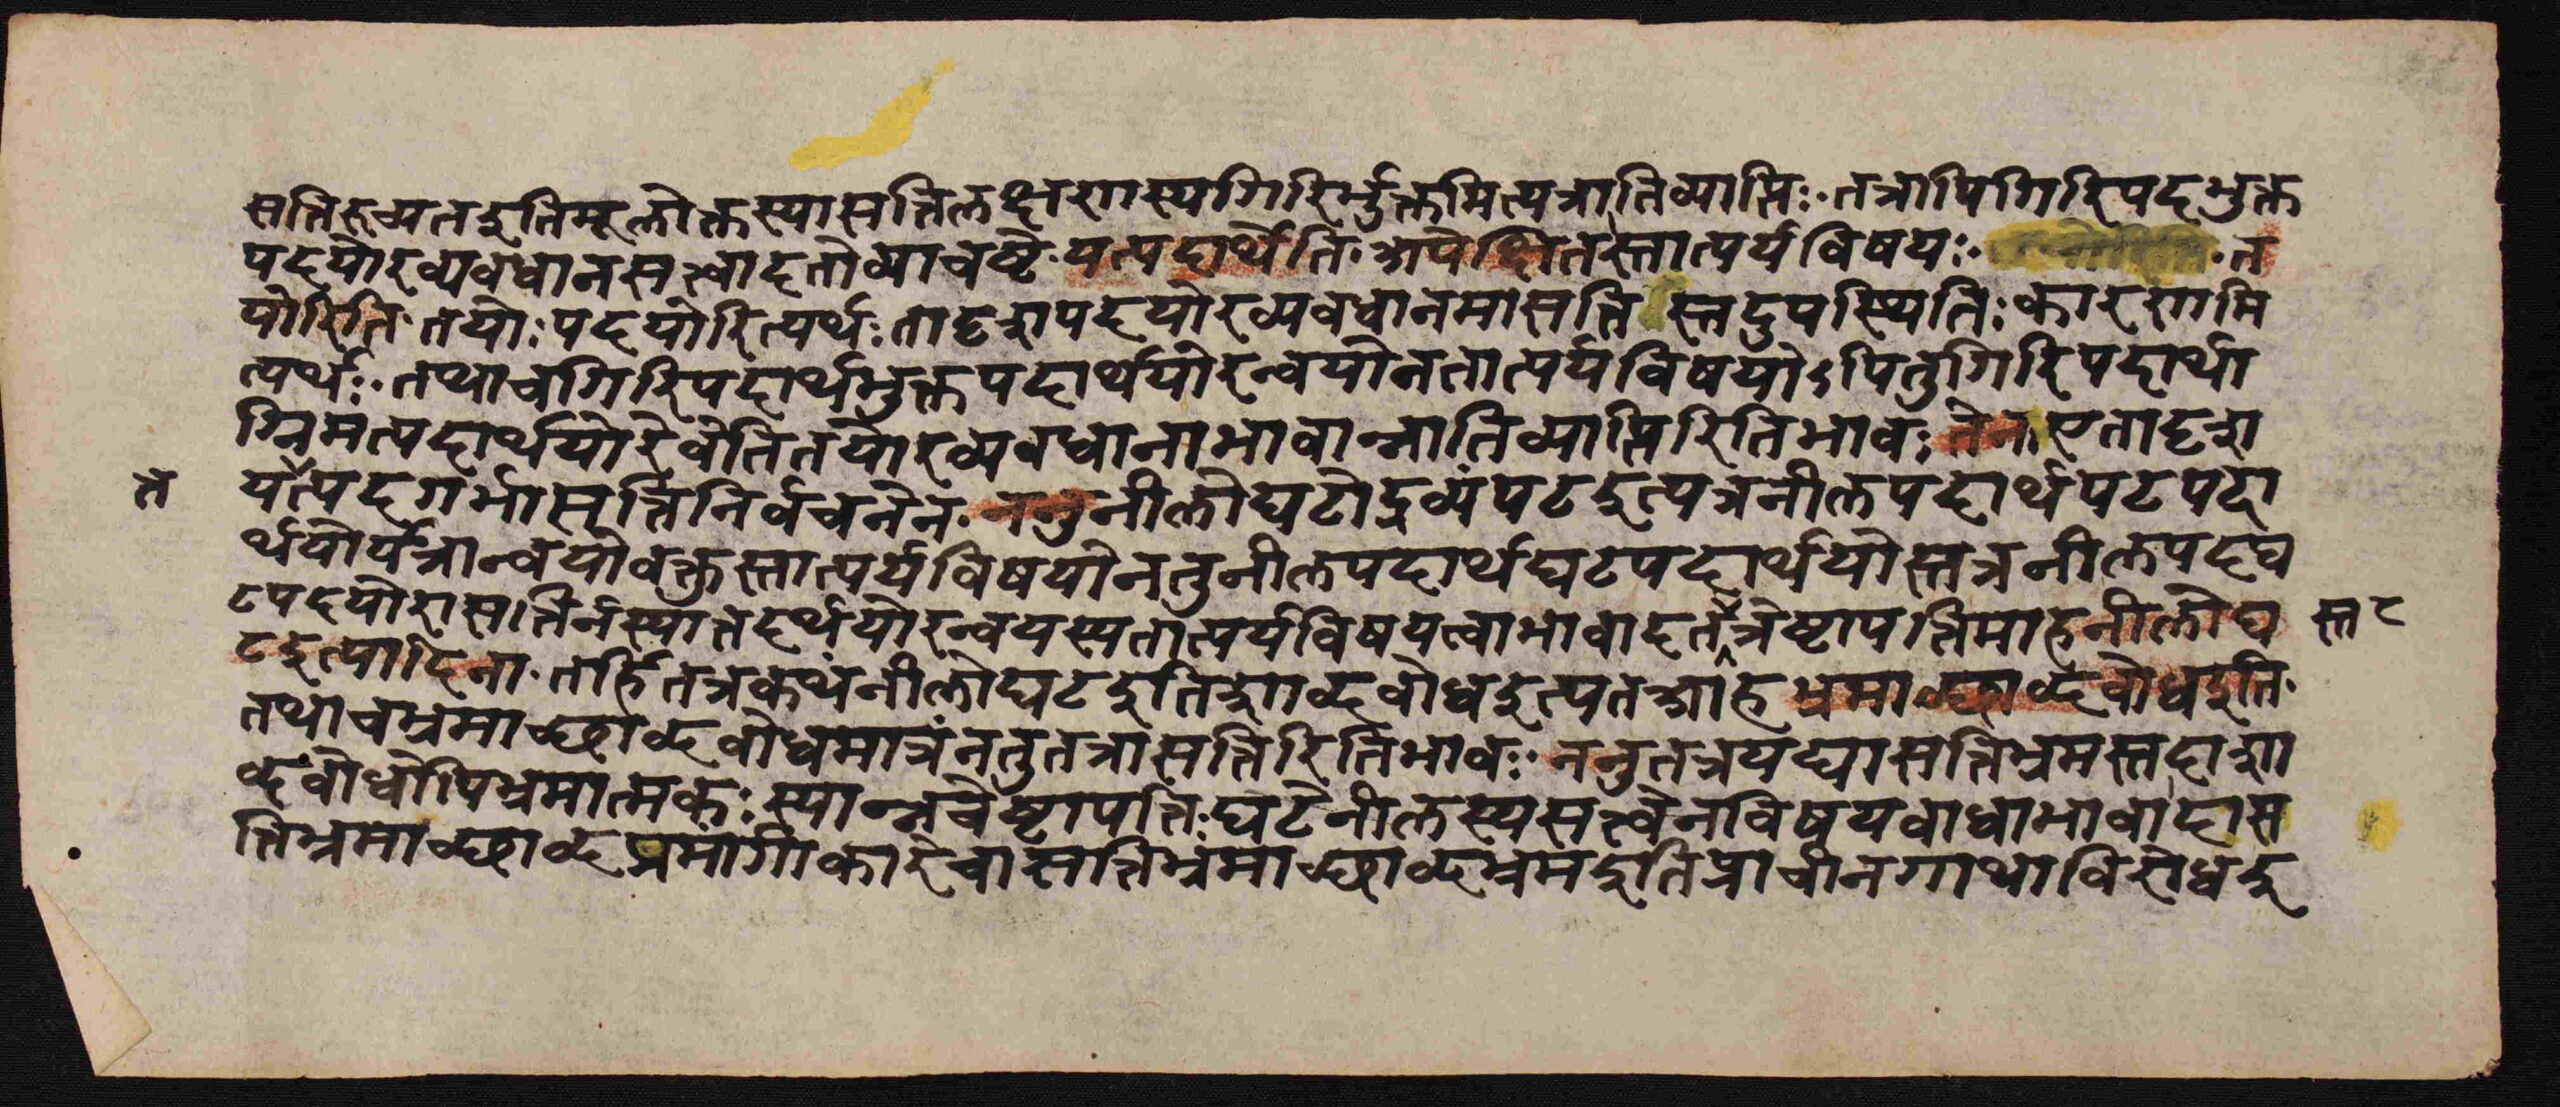 सत्तिरुच्यतइतिमूलोक्तस्यासत्तिलक्षणस्यगिरिर्भुक्तमित्यत्रातिव्याप्तिः॰तत्रापिगिरिपदभुक्त
पदयोरव्यवधानसत्त्वादतोव्याचष्टे॰यत्पदार्थेति॰अपेक्षितस्तात्पर्यविषयः॰त
योरिति॰तयोःपदयोरित्यर्थःतादृशपदयोरव्यवधानमासत्तिस्तदुपस्थितिःकारणमि
त्यर्थः॰तथाचगिरिपदार्थभुक्तपदार्थयोरन्वयोनतात्पर्यविषयोऽपितुगिरिपदार्था
ग्निमत्पदार्थयोरेवेतितयोरव्यवधानाभावान्नातिव्याप्तिरितिभावःतेनएतादृश
यत्पदगर्भासत्तिनिर्वचनेन॰ननुनीलोघटोद्रव्यंपटइत्यत्रनीलपदार्थपटपदा
त
र्थयोर्यत्रान्वयोवक्तुस्तात्पर्यविषयोनतुनीलपदार्थघटपदार्थयोस्तत्रनीलपदघ
टपदयोरासत्तिर्नस्यात्तदर्थयोरन्वयस्यतात्पर्यविषयत्वाभावादतत्रेष्टापत्तिमाहनीलोघ
स्त ८
टइत्यादिना॰तर्हितत्रकथंनीलोघटइतिशाब्दबोधइत्यतआहभ्रमाच्छाब्दबोधइति॰
तथाचभ्रमाच्छाब्दबोधमात्रंनतुतत्रासत्तिरितिभावः॰ननुतत्रयद्यासत्तिभ्रमस्तदाशा
ब्दबोधोपिभ्रमात्मकःस्यान्नचेष्टापत्तिःघटेनीलस्यसत्त्वेनविषयबाधाभावादास
त्तिभ्रमाच्छाब्दप्रमांगीकारेचासत्तिभ्रमाच्छाब्दभ्रमइतिप्राचीनगाथाविरोधइ